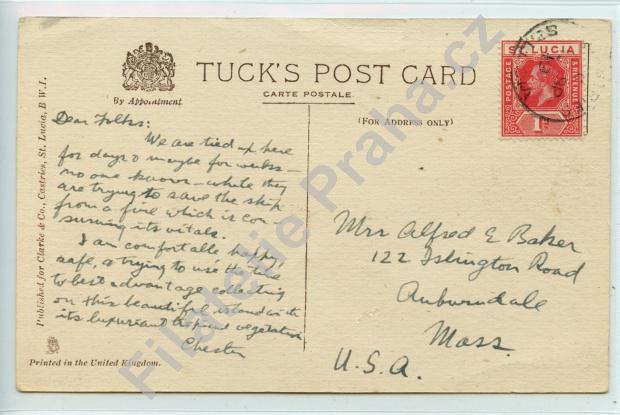 TUCK'S POST CARD
CARTE POSTALE
By Appointment
(FOR ADDRESS ONLY)
ST. LUCIA
POSTAGE
& REVENUE
1
Dear Folks:
We are tied up here
for days & maybe for weeks —
no one knows — while they
are trying to save the ship
from a fire which is con-
suming its vitals.
I am comfortable, happy,
safe, & trying to use the time
to best advantage collecting
on this beautiful island with
its luxuriant tropical vegetation
Chester
Mrs Alfred E Baker
122 Islington Road
Auburndale
Mass.
U.S.A.
Published for Clarke & Co., Castries, St. Lucia, B W.I.
Printed in the United Kingdom.
Filatelie Praha.cz